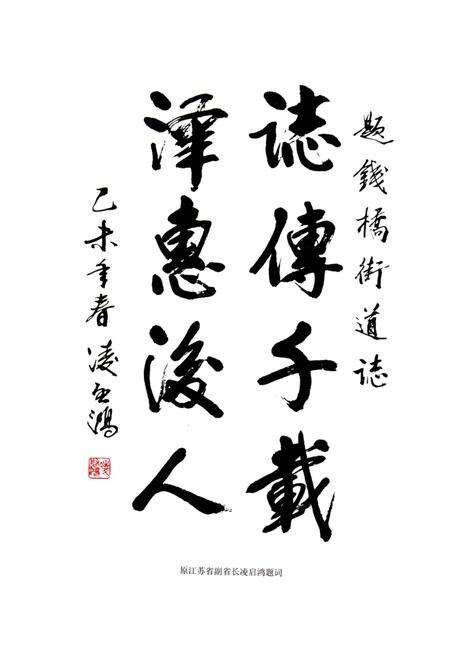 题錢橋街道誌
誌傳千載
澤惠後人
乙未年春 凌启鸿
原江苏省副省长凌启鸿题词